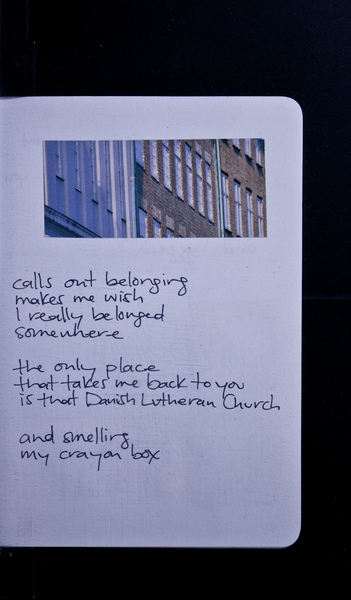 calls out belonging
makes me wish
I really belonged
somewhere
the only place
that takes me back to you
is that Danish Lutheran Church
and smelling
my crayon box